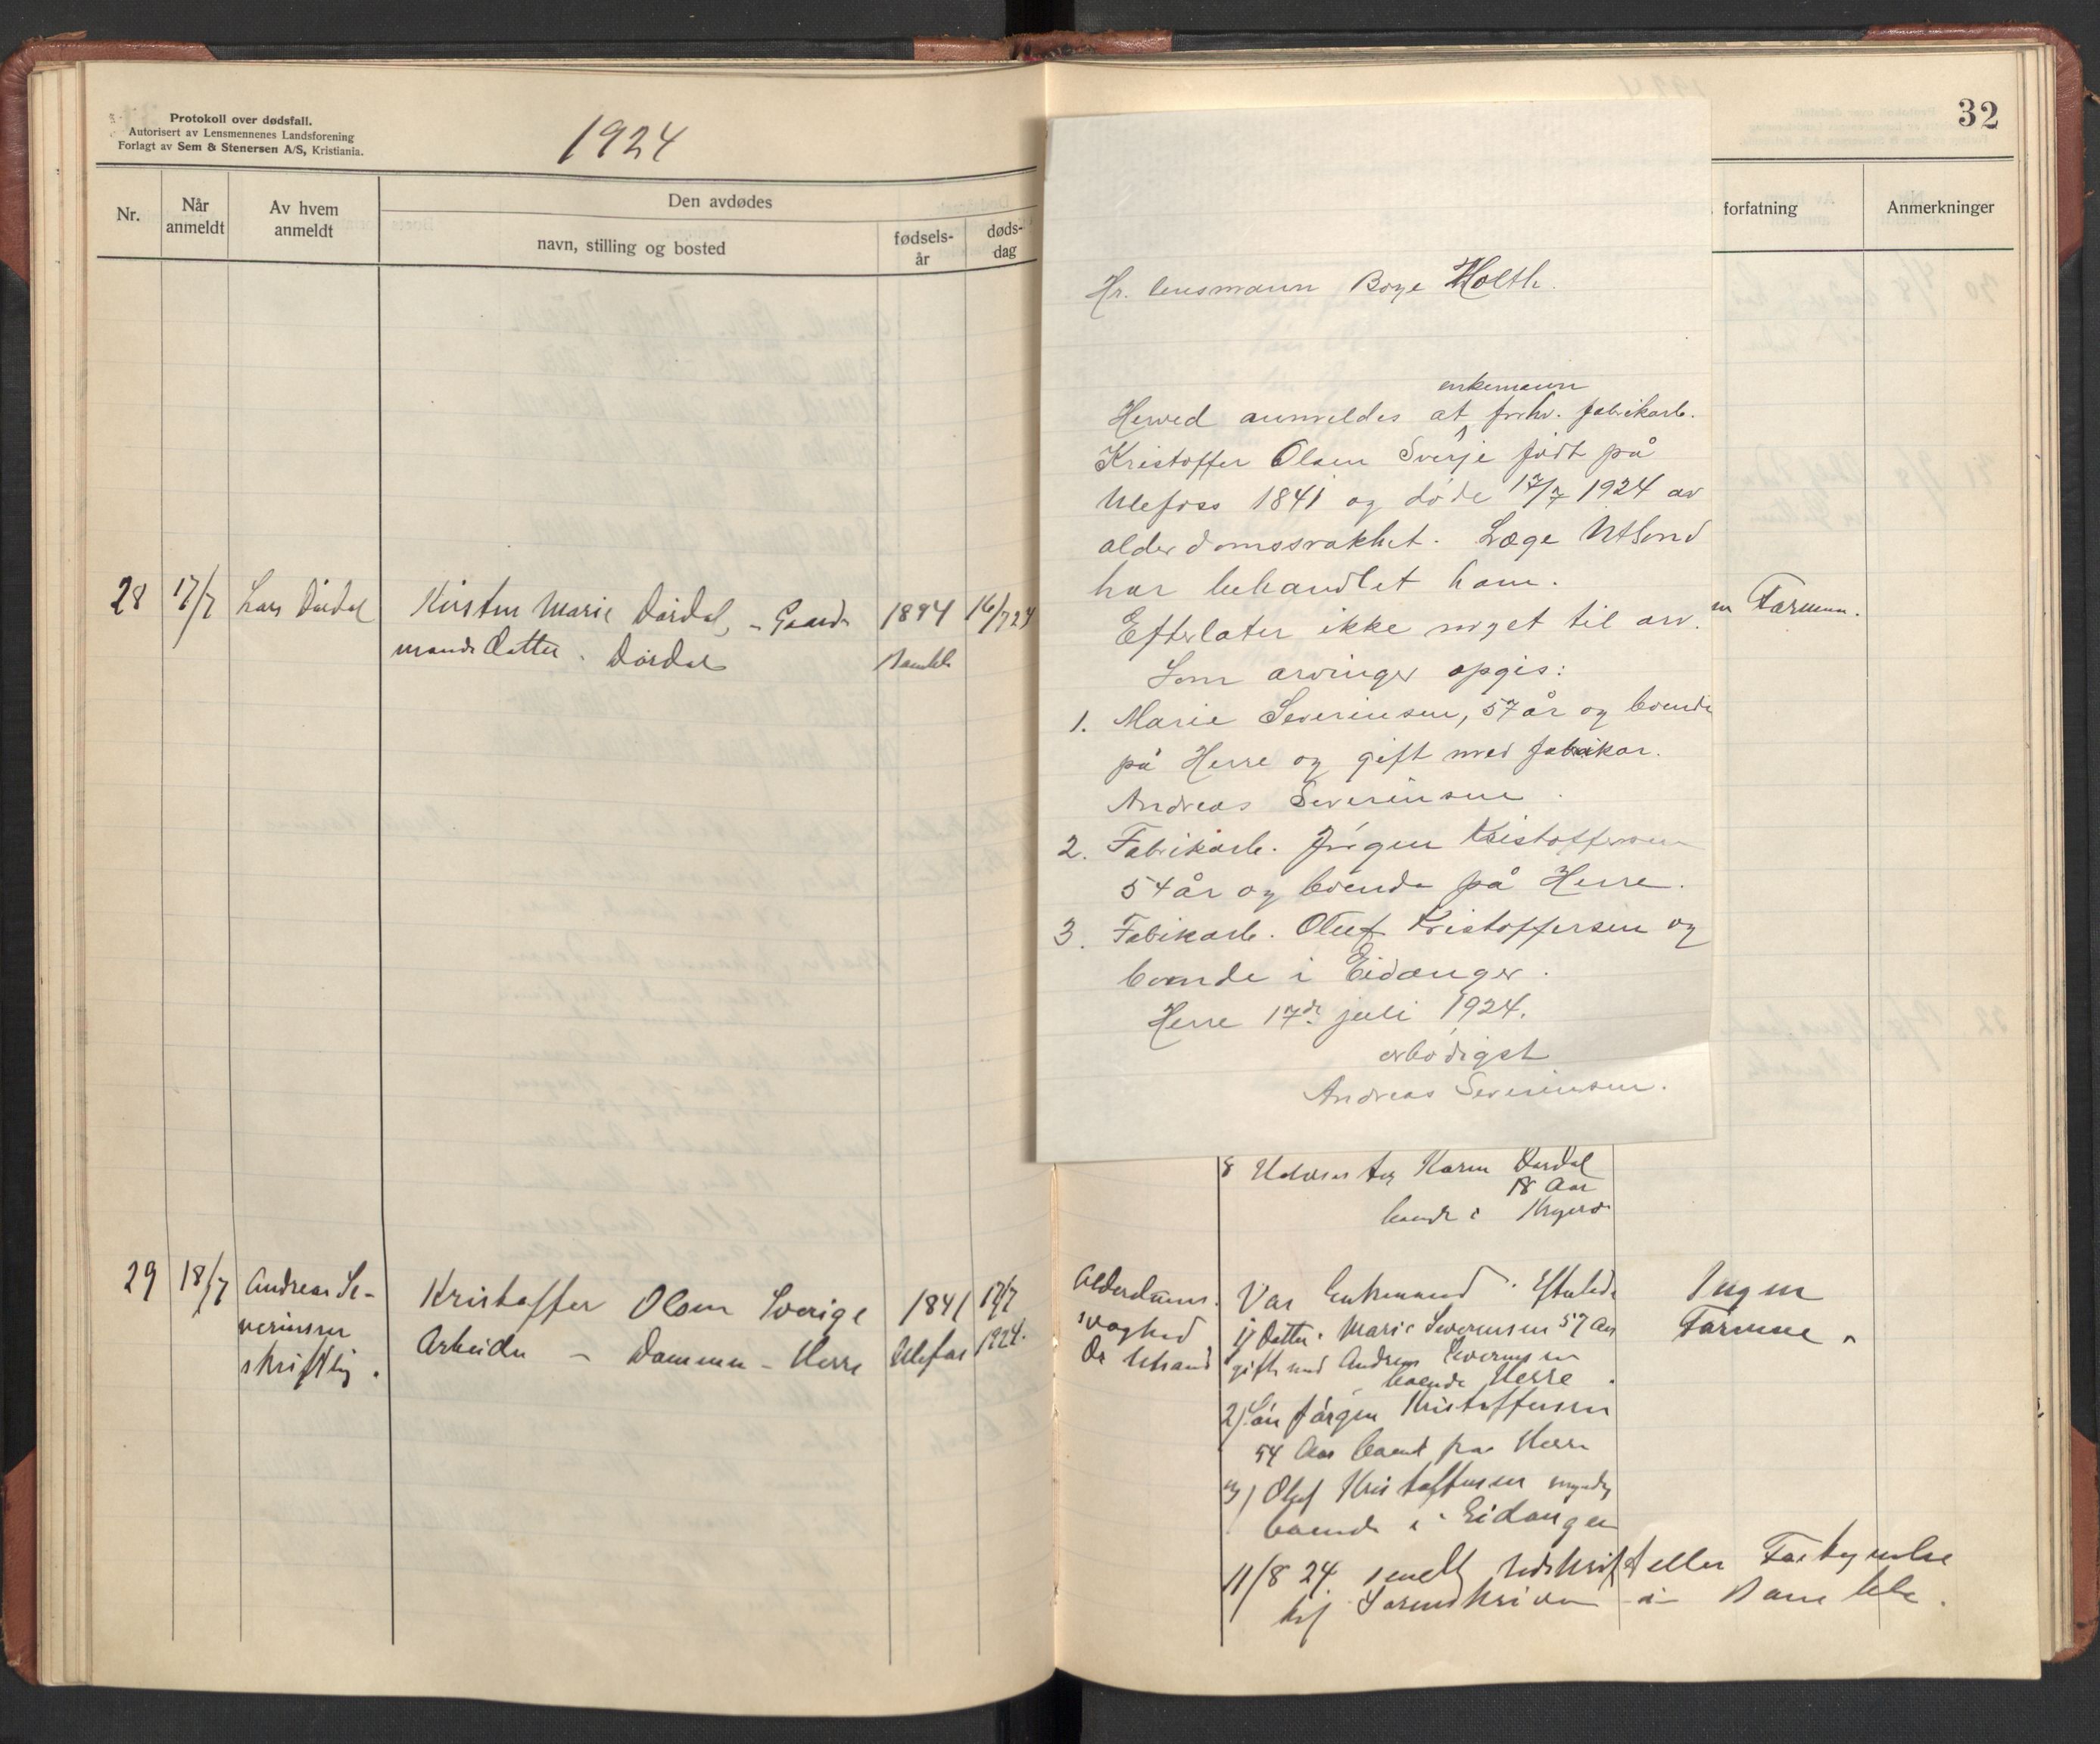 Protokoll over dødsfall.
Autorisert av Lensmennenes Landsforening
Forlagt av Sem & Stenersen A/S, Kristiania.
1924
Nr.
Når anmeldt
Av hvem anmeldt
Den avdødes
navn, stilling og bosted
fødsels-år
døds-dag
28 17/7 Lars Dördal Kirsten Marie Dördal, - Gaard- 1894 16/7 24
mands Datter. Dördal Bamble
29 18/7 Andreas Se- Kristoffer Olsen Sverige 1841 17/7
verinsen Arbeider - Dammen - Herre Ulefos 1924.
skriftlig.
32
forfatning
Anmerkninger
Hr. lensmann Boye Holth.
enkemann
Herved anmeldes at forhv. fabrikarb.
Kristoffer Olsen Sverje født på
Ulefoss 1841 og døde 17/7 1924 av
alderdomssvakhet. Læge Utsond
har behandlet ham.
Efterlater ikke noget til arv.
Som arvinger opgis:
1. Marie Severinsen, 57 år og boende
på Herre og gift med fabrikar.
Andreas Severinsen.
2. Fabrikarb. Jørgen Kristoffersen
54 år og boende på Herre.
3. Fabikarb. Oluf Kristoffersen og
boende i Eidanger.
Herre 17de juli 1924.
ærbødigst
Andreas Severinsen.
Formue.
8 Karen Dördal
18 Aar
boende i Kragerö
Alderdoms-
svaghed
Dr Utsand
Var Enkemand. Efterlede
1) Datter. Marie Severinsen 57 Aar
gift med Andreas Severinsen
boende Herre.
2) Sön Jörgen Kristoffersen
54 Aar boende paa Herre
3) Oluf Kristoffersen myndig
boende i Eidanger
Ingen
Formue
11/8 24 sendt Udskrift eller Forkyndelse
til Sorenskriveren i Bamble.